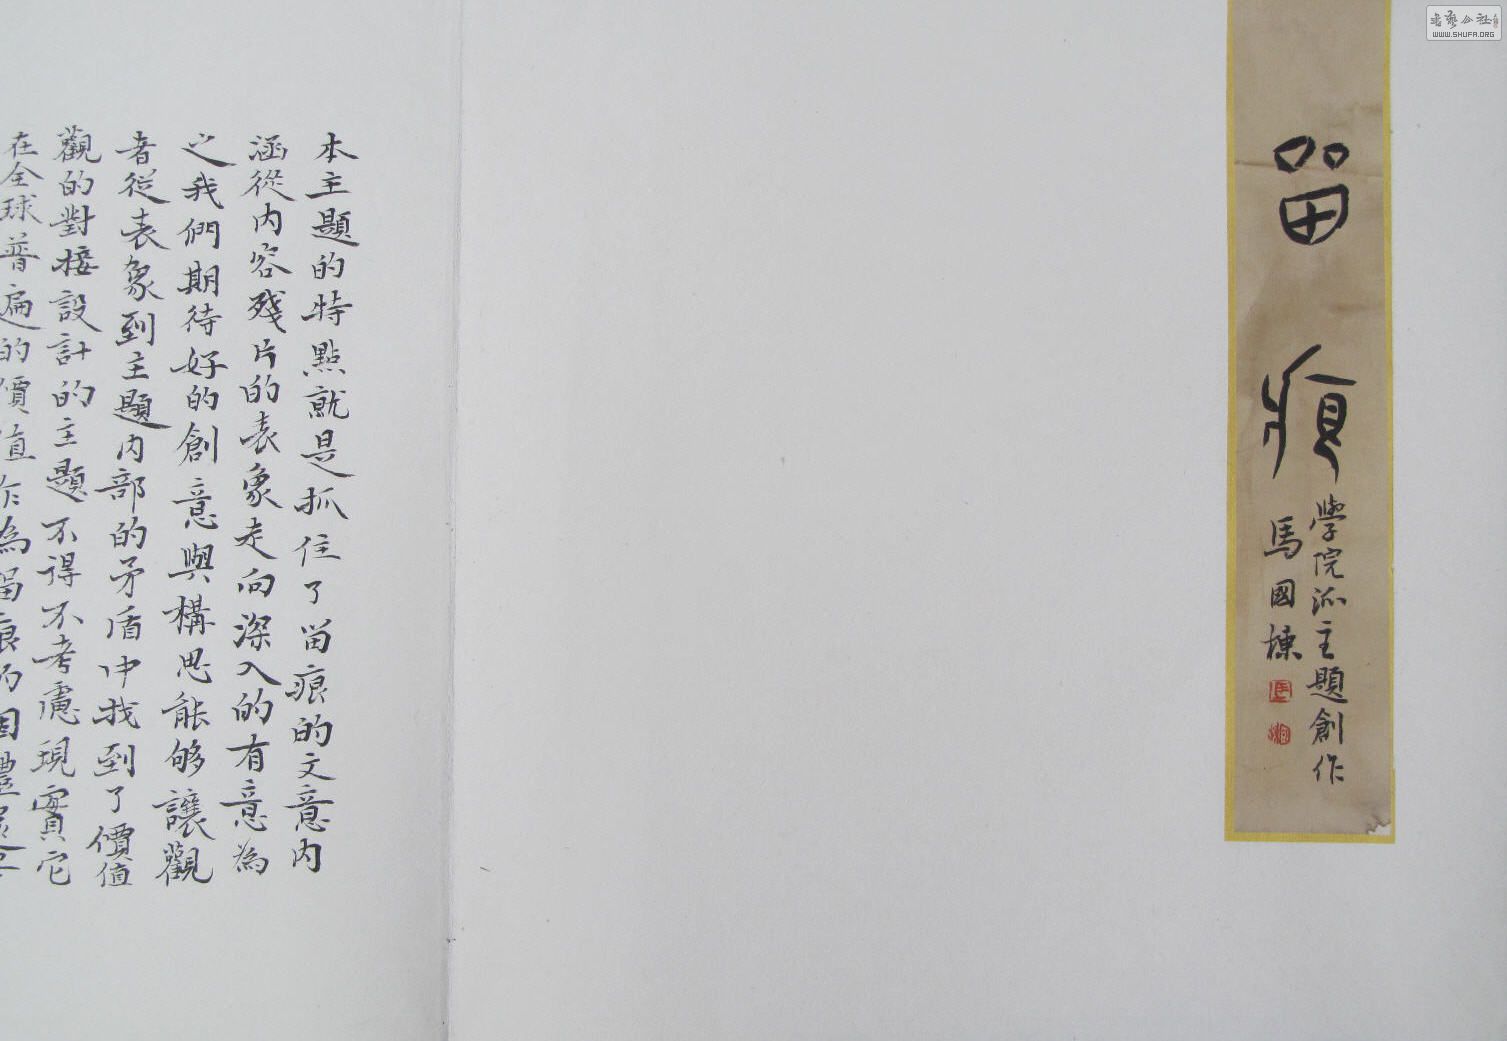 書藝公社
WWW.SHUFA.ORG
畱痕
學院派主題創作
馬國棟
本主題的特點就是抓住了畱痕的文意內
涵從内容殘片的表象走向深入的有意為
之我們期待好的創意與構思能够讓觀
者從表象到主題内部的矛盾中找到了價值
觀的對接設計的主題不得不考慮現實它
在全球普遍的價值作為畱痕的